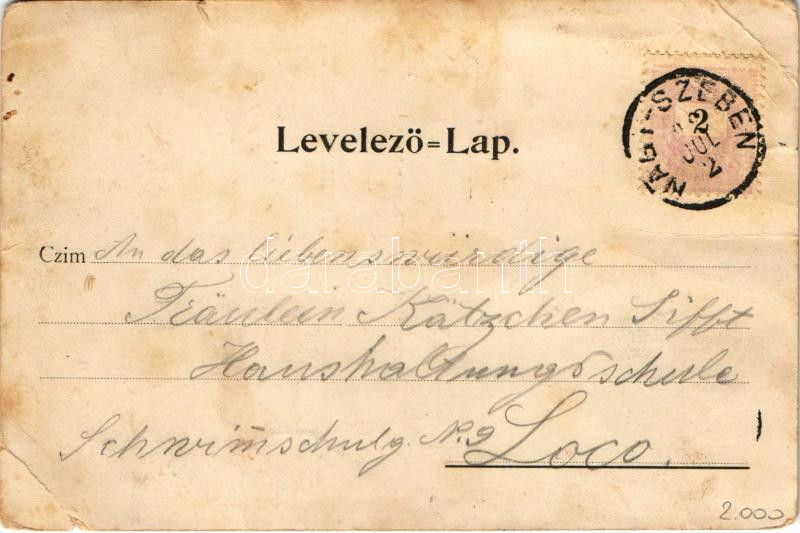 NAGY-SZEBEN
2
JUL
2
Levelező=Lap.
Czim An das liebenswürdige
Fräulein Kätzchen Sifft
Haushaltungsschule
Schwimschulg. No. 9 Loco.
darabanth
2.000